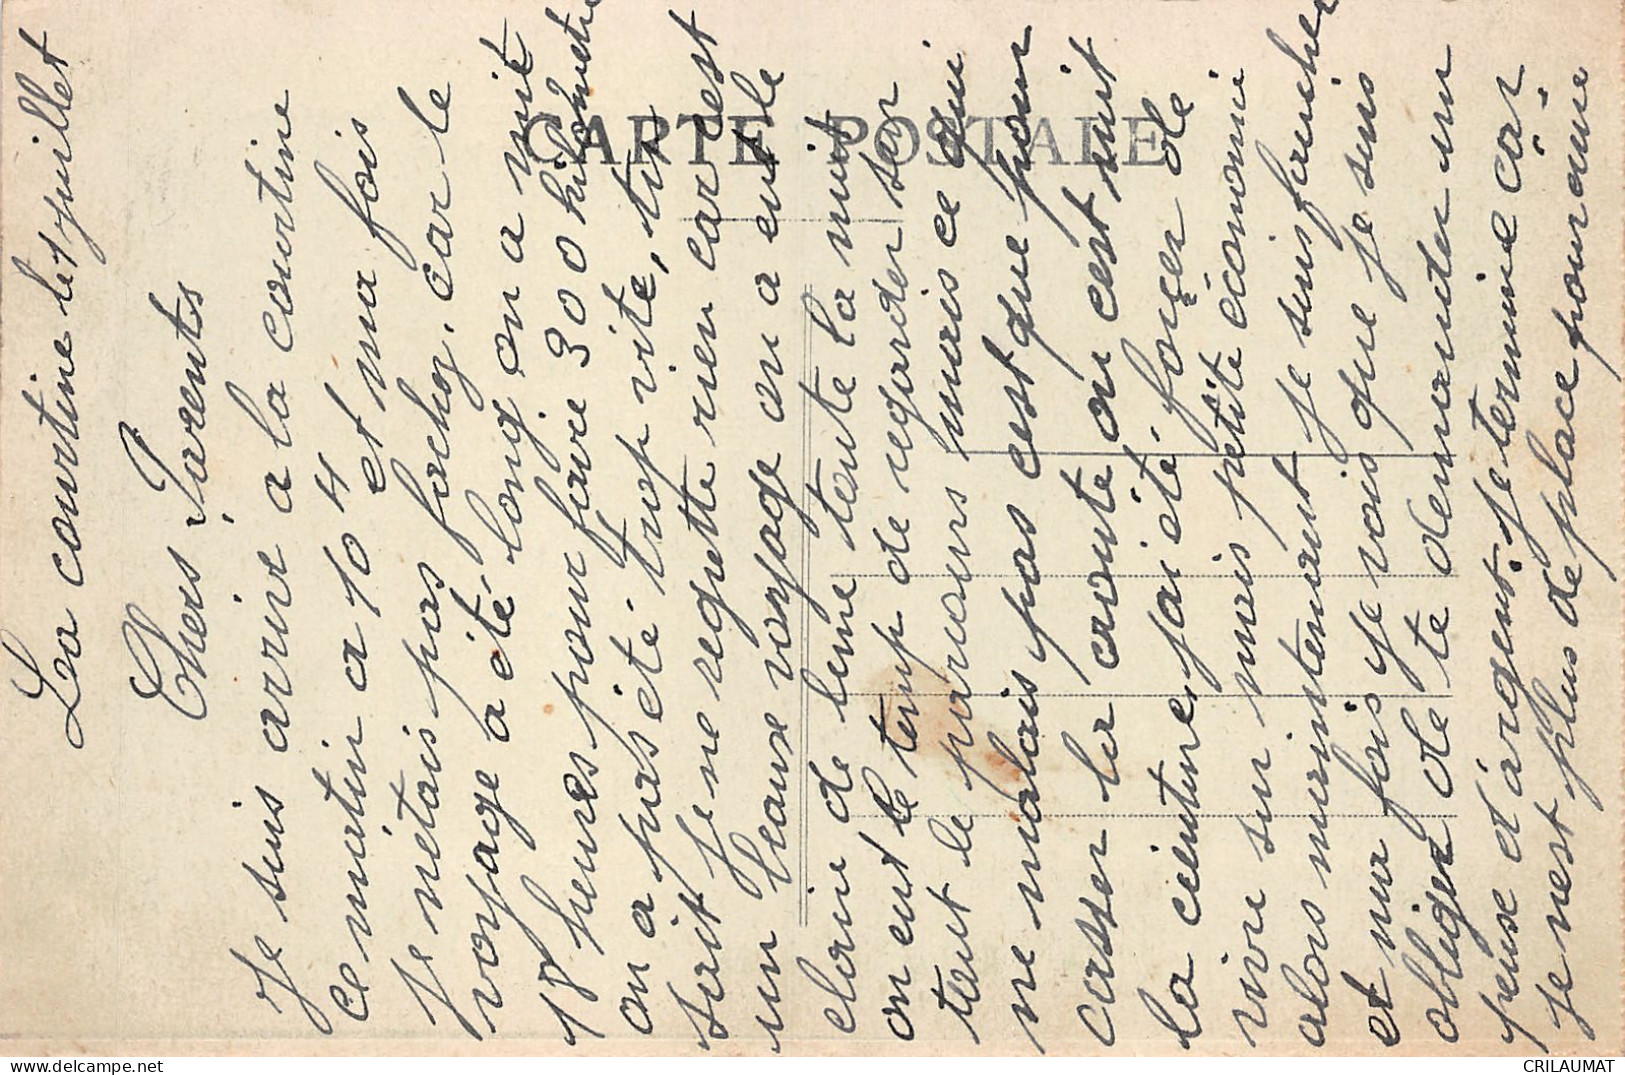 La courtine le 1 juillet
Chers Parents
Je suis arrivé a la courtine
ce matin a 10 H et ma fois
Je nétais pas fachez, car le
voyage a été long on a mit
18 heures pour faire 300 kilometre
on a pas été trop vite, tu
sait Je ne regrette rien car cest
un beaux voyage on a eut le
claire de lune toute la nuit
on eut le temp de regarder sar
tout le parcours mais ce qui
ne valais pas cest que pour
casser la croute on cest mit
la ceinture, jai été foçer de
vivre sur mais petite économie
alors maintenant je suis faucher
et ma fois je vois que je suis
obliger de te demander un
peuse d'argent. Je termine car
je nest plus de place pour ecrire
CARTE POSTALE
CRILAUMAT